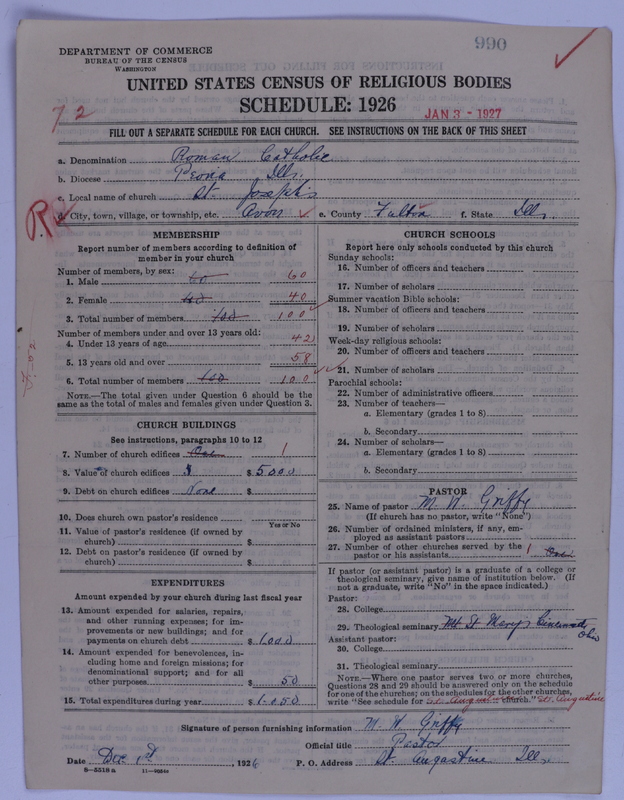 990
DEPARTMENT OF COMMERCE
BUREAU OF THE CENSUS
WASHINGTON
UNITED STATES CENSUS OF RELIGIOUS BODIES
SCHEDULE: 1926
72
JAN 3 - 1927
FILL OUT A SEPARATE SCHEDULE FOR EACH CHURCH. SEE INSTRUCTIONS ON THE BACK OF THIS SHEET
a. Denomination Roman Catholic
b. Diocese Peoria Ills.
c. Local name of church St. Joseph's
R
d. City, town, village, or township, etc. Avon e. County Fulton f. State Ills.
MEMBERSHIP
Report number of members according to definition of
member in your church
Number of members, by sex:
1. Male 60 60
2. Female 40 40
3. Total number of members 100 100
Number of members under and over 13 years old:
4. Under 13 years of age 42
5. 13 years old and over 58
6. Total number of members 100 100
NOTE.—The total given under Question 6 should be the
same as the total of males and females given under Question 3.
CHURCH BUILDINGS
See instructions, paragraphs 10 to 12
7. Number of church edifices One 1
8. Value of church edifices $ $ 5000
9. Debt on church edifices None $
10. Does church own pastor's residence
Yes or No
11. Value of pastor's residence (if owned by
church) $
12. Debt on pastor's residence (if owned by
church) $
EXPENDITURES
Amount expended by your church during last fiscal year
13. Amount expended for salaries, repairs,
and other running expenses; for im-
provements or new buildings; and for
payments on church debt $ 1000
14. Amount expended for benevolences, in-
cluding home and foreign missions; for
denominational support; and for all
other purposes $ 50
15. Total expenditures during year $ 1050
CHURCH SCHOOLS
Report here only schools conducted by this church
Sunday schools:
16. Number of officers and teachers
17. Number of scholars
Summer vacation Bible schools:
18. Number of officers and teachers
19. Number of scholars
Week-day religious schools:
20. Number of officers and teachers
21. Number of scholars
Parochial schools:
22. Number of administrative officers
23. Number of teachers—
a. Elementary (grades 1 to 8)
b. Secondary
24. Number of scholars—
a. Elementary (grades 1 to 8)
b. Secondary
PASTOR
25. Name of pastor M. W. Griffy
(If church has no pastor, write "None")
26. Number of ordained ministers, if any, em-
ployed as assistant pastors
27. Number of other churches served by the
pastor or his assistants 1 One
If pastor (or assistant pastor) is graduate of a college or
theological seminary, give name of institution below. (If
not a graduate, write "No" in the space indicated.)
Pastor:
28. College
29. Theological seminary Mt St Mary's Cincinnati Ohio
Assistant pastor:
30. College
31. Theological seminary
NOTE.—Where one pastor serves two or more churches,
Questions 28 and 29 should be answered only on the schedule
for one of the churches; on the schedules for the other churches,
write "See schedule for St. Augustine church." St. Augustine
Signature of person furnishing information M. W. Griffy
Official title Pastor
Date Dec 1st, 1926 P. O. Address St. Augustine Ills.
8—5518a